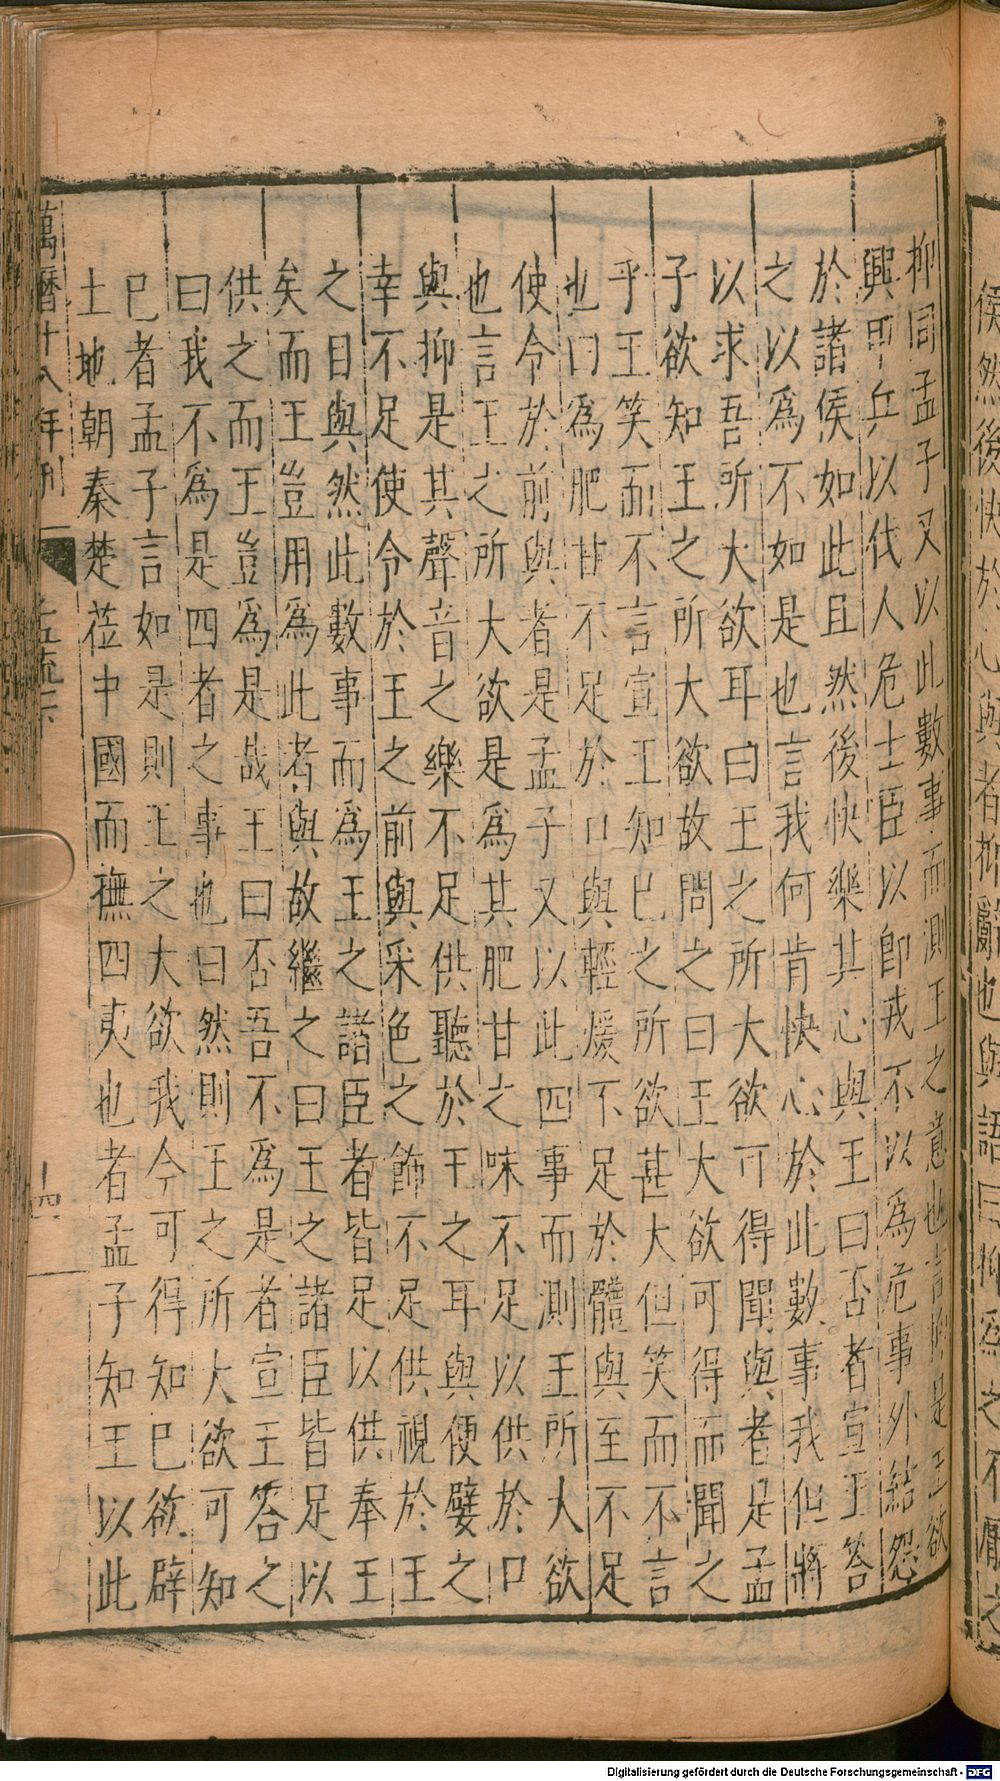 柳同孟子又以此數事而測王之意也言抑是王欲
興甲兵以伐人危士臣以即戎不以為危事外結怨
於諸侯如此且然後快樂其心與王曰否者宣王答
之以為不如是也言我何肯快心於此數事我但將
以求吾所大欲耳曰王之所大欲可得聞與者是孟
子欲知王之所大欲故問之曰王大欲可得而聞之
乎王笑而不言宣王知已之所欲甚大但笑而不言
也曰為肥甘不足於口與輕煖不足於體與至不足
使令於前與者是孟子又以此四事而測王所大欲
也言王之所大欲是為其肥甘之味不足以供於口
與抑是其聲音之樂不足供聽於王之耳與便嬖之
幸不足使令於王之前與采色之飾不足供視於王
之目與然此數事而為王之諸臣者皆足以供奉王
矣而王豈用為此者與故繼之曰王之諸臣皆足以
供之而王豈為是哉王曰否吾不為是者宣王答之
曰我不為是四者之事也曰然則王之所大欲可知
已者孟子言如是則王之大欲我今可得知已欲辟
土地朝秦楚莅中國而撫四夷也者孟子知王以此
萬曆十八年刊
孟疏下
十四
侯然後快於心與者抑辭也與語曰抑為之不厭之
Digitalisierung gefördert durch die Deutsche Forschungsgemeinschaft - DFG